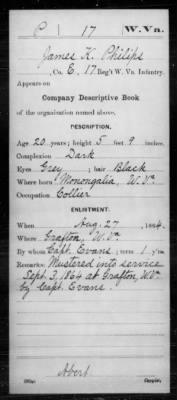 P 17 W.Va.
James K. Philips
, Co. E, 17 Reg't W. Va. Infantry.
Appears on
Company Descriptive Book
of the organization named above.
DESCRIPTION.
Age 20 years; height 5 feet 9 inches.
Complexion Dark
Eyes Grey; hair Black
Where born Monongalia, W. Va.
Occupation Collier
ENLISTMENT.
When Aug. 27, 1864.
Where Grafton, W. Va.
By whom Capt. Evans; term 1 y'rs.
Remarks: Mustered into service
Sept. 3, 1864 at Grafton, W.Va
by Capt. Evans.
Copyist.